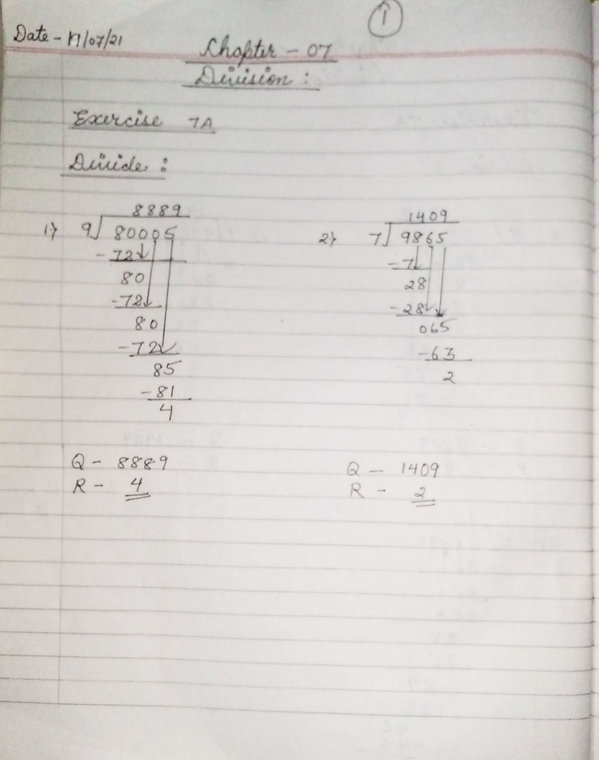 1
Date - 17/07/21
Chapter - 07
Division :
Exercise 7A
Divide :
8889
1) 9 80005
- 72
80
-72
80
-72
85
-81
4
Q - 8889
R - 4
1409
2) 7 9865
-7
28
-28
065
-63
2
Q - 1409
R - 2